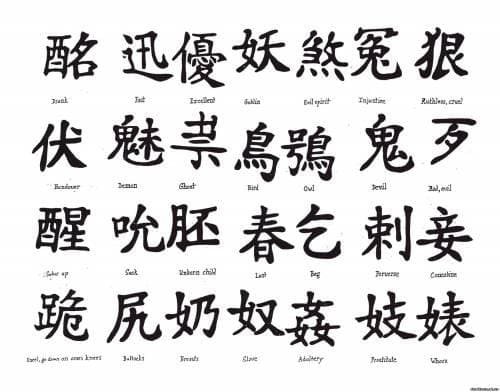 酩 迅 優 妖 煞 冤 狠
Drunk Fast Excellent Goblin Evil spirit Injustice Ruthless, cruel
伏 魅 祟 鳥 鴞 鬼 歹
Bendover Demon Ghost Bird Owl Devil Bad, evil
醒 吮 胚 春 乞 剌 妾
Sober up Suck Unborn child Lust Beg Perverse Concubine
跪 尻 奶 奴 姦 妓 婊
Kneel, go down on ones knees Buttocks Breasts Slave Adultery Prostitute Whore